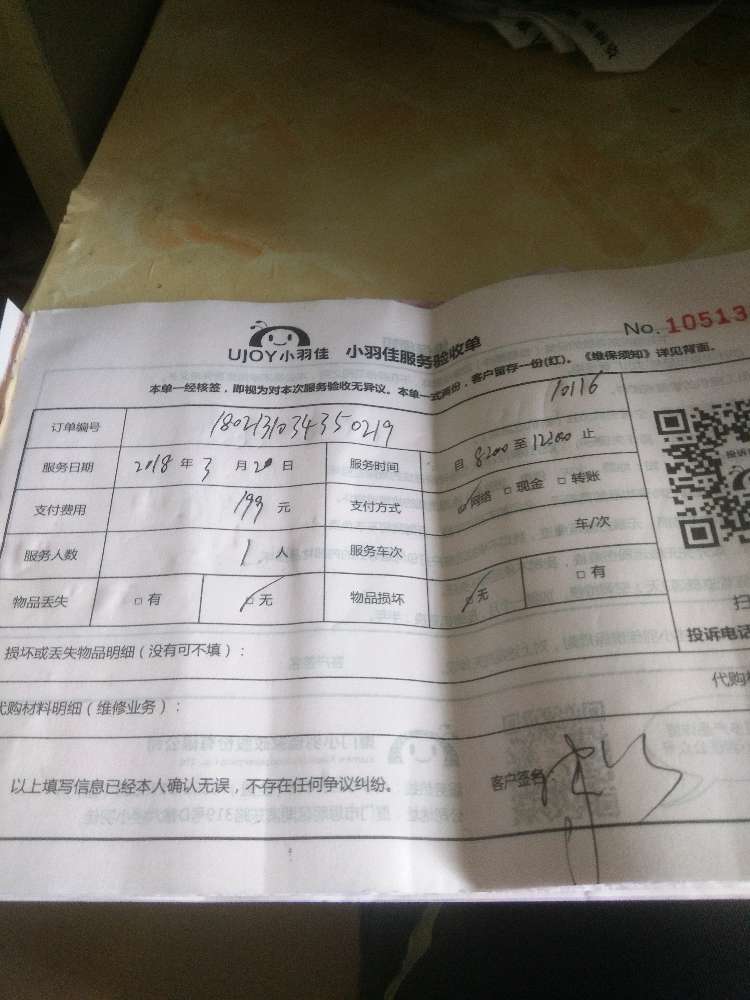 UJOY小羽佳 小羽佳服务验收单
No. 10513
本单一经核签，即视为对本次服务验收无异议。本单一式两份，客户留存一份(红)。《维保须知》详见背面。
10116
订单编号 1802131034350219
服务日期 2018 年 3 月 20 日 服务时间 自 8:00 至 12:00 止
支付费用 199 元 支付方式 网络 现金 转账
服务人数 1 人 服务车次 车/次
物品丢失 有 无 物品损坏 无 有
投诉电话
损坏或丢失物品明细（没有可不填）：
代购材料明细（维修业务）：
代购
以上填写信息已经本人确认无误，不存在任何争议纠纷。 客户签名：